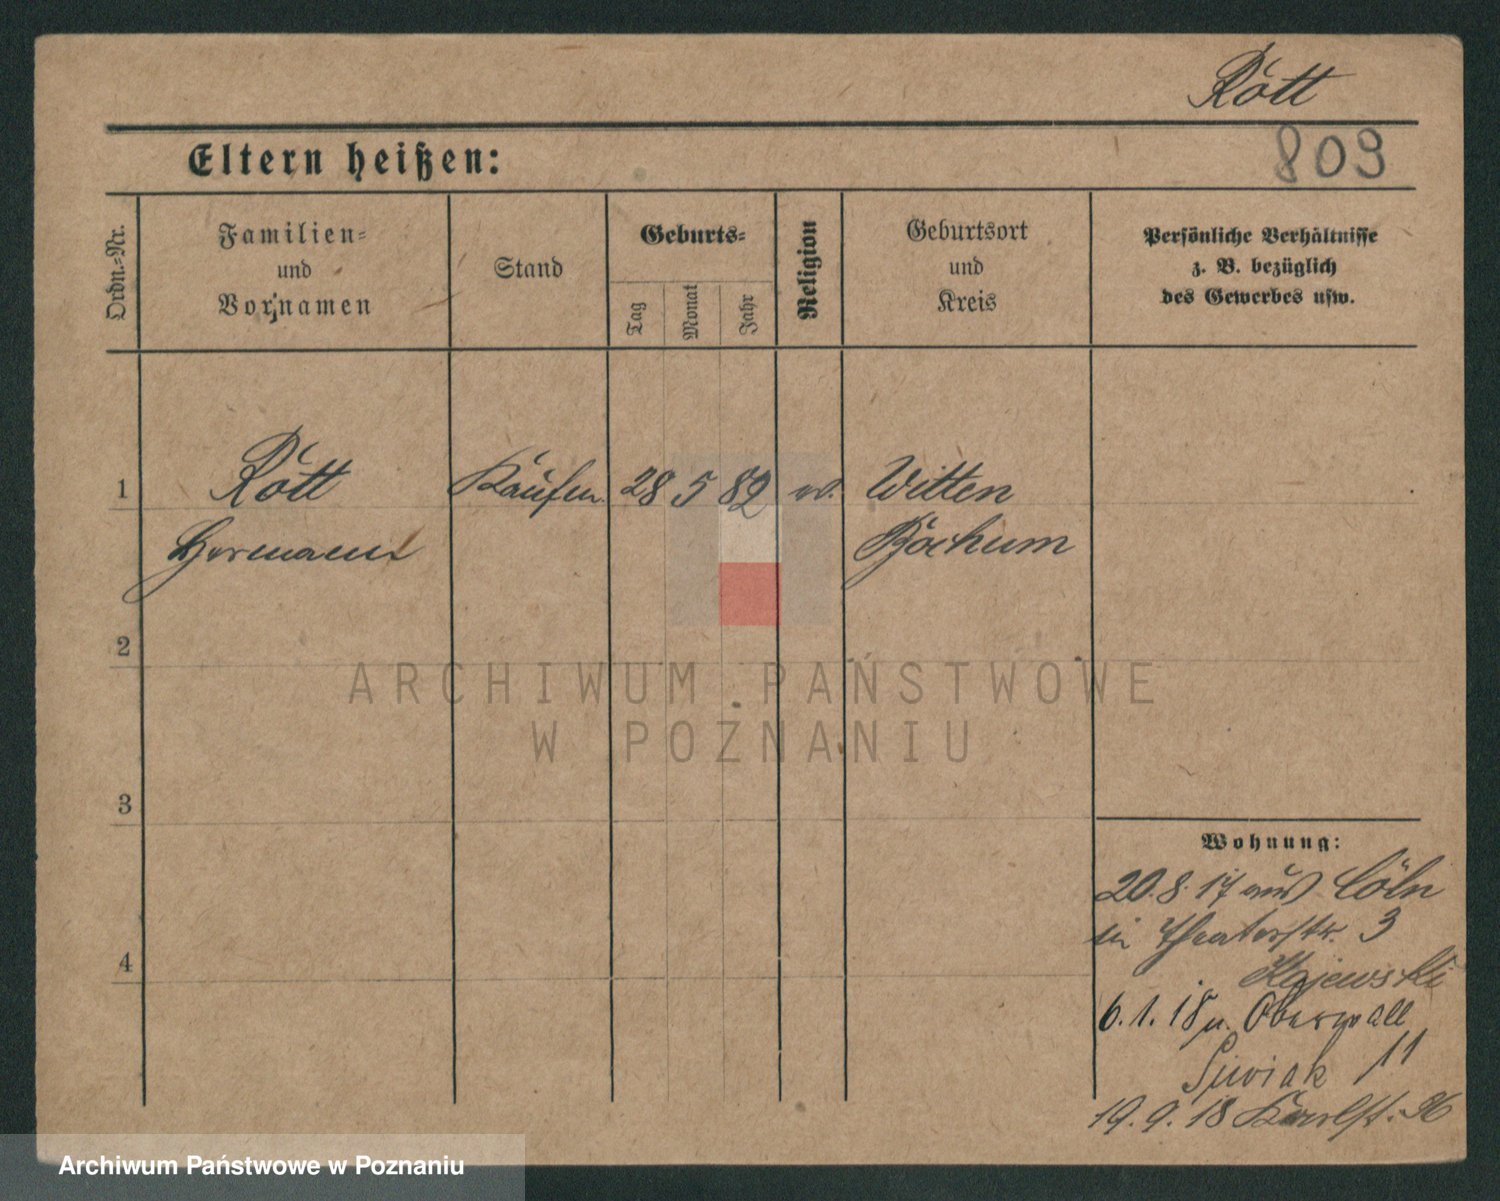 Rött
809
Eltern heißen:
Ordn.-Nr.
Familien-
und
Vornamen
Stand
Geburts-
Tag
Monat
Jahr
Religion
Geburtsort
und
Kreis
Persönliche Verhältnisse
z. B. bezüglich
des Gewerbes usw.
1 Rött 28 5 82 ev. Witten
Hermann Bochum
2
ARCHIWUM PAŃSTWOWE
W POZNANIU
3
Wohnung:
20.8.17 aus Cöln
in Theaterstr. 3
4
6.1.18 n. Oberwall
11
19.9.18 Karlst. 36
Archiwum Państwowe w Poznaniu